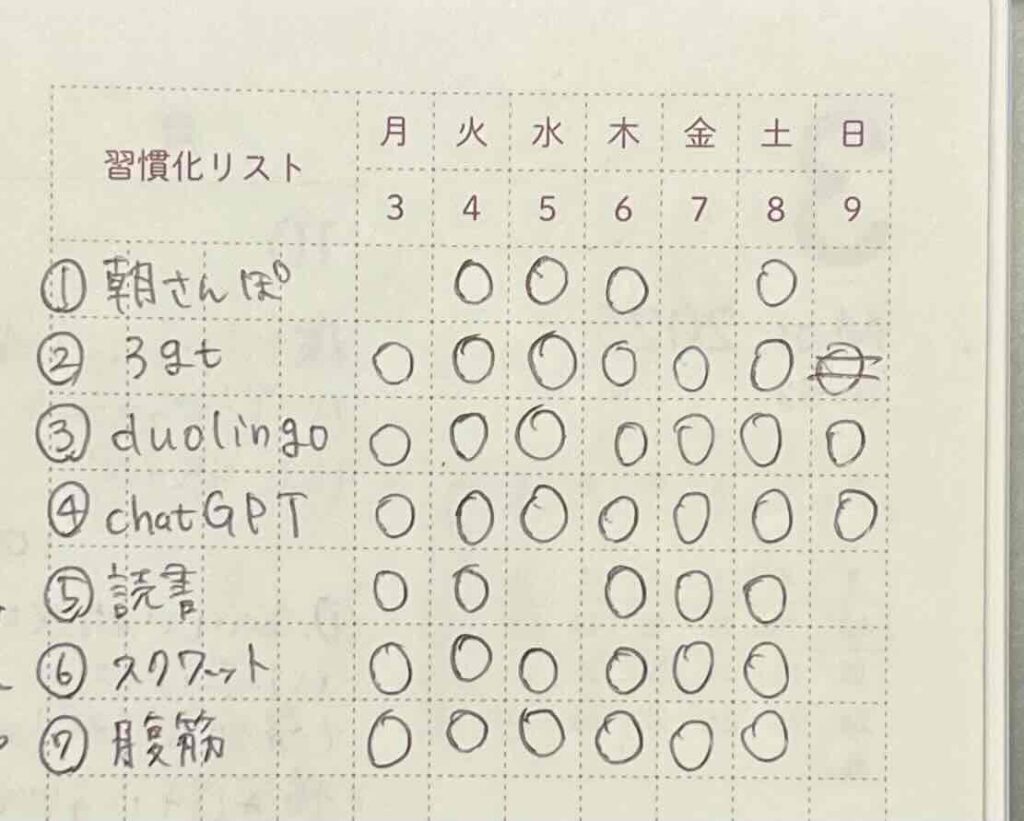 習慣化リスト 月 火 水 木 金 土 日
3 4 5 6 7 8 9
① 朝さんぽ ○ ○ ○ ○
② 3gt ○ ○ ○ ○ ○ ○
③ duolingo ○ ○ ○ ○ ○ ○ ○
④ chatGPT ○ ○ ○ ○ ○ ○ ○
⑤ 読書 ○ ○ ○ ○ ○
⑥ スクワット ○ ○ ○ ○ ○ ○
⑦ 腹筋 ○ ○ ○ ○ ○ ○